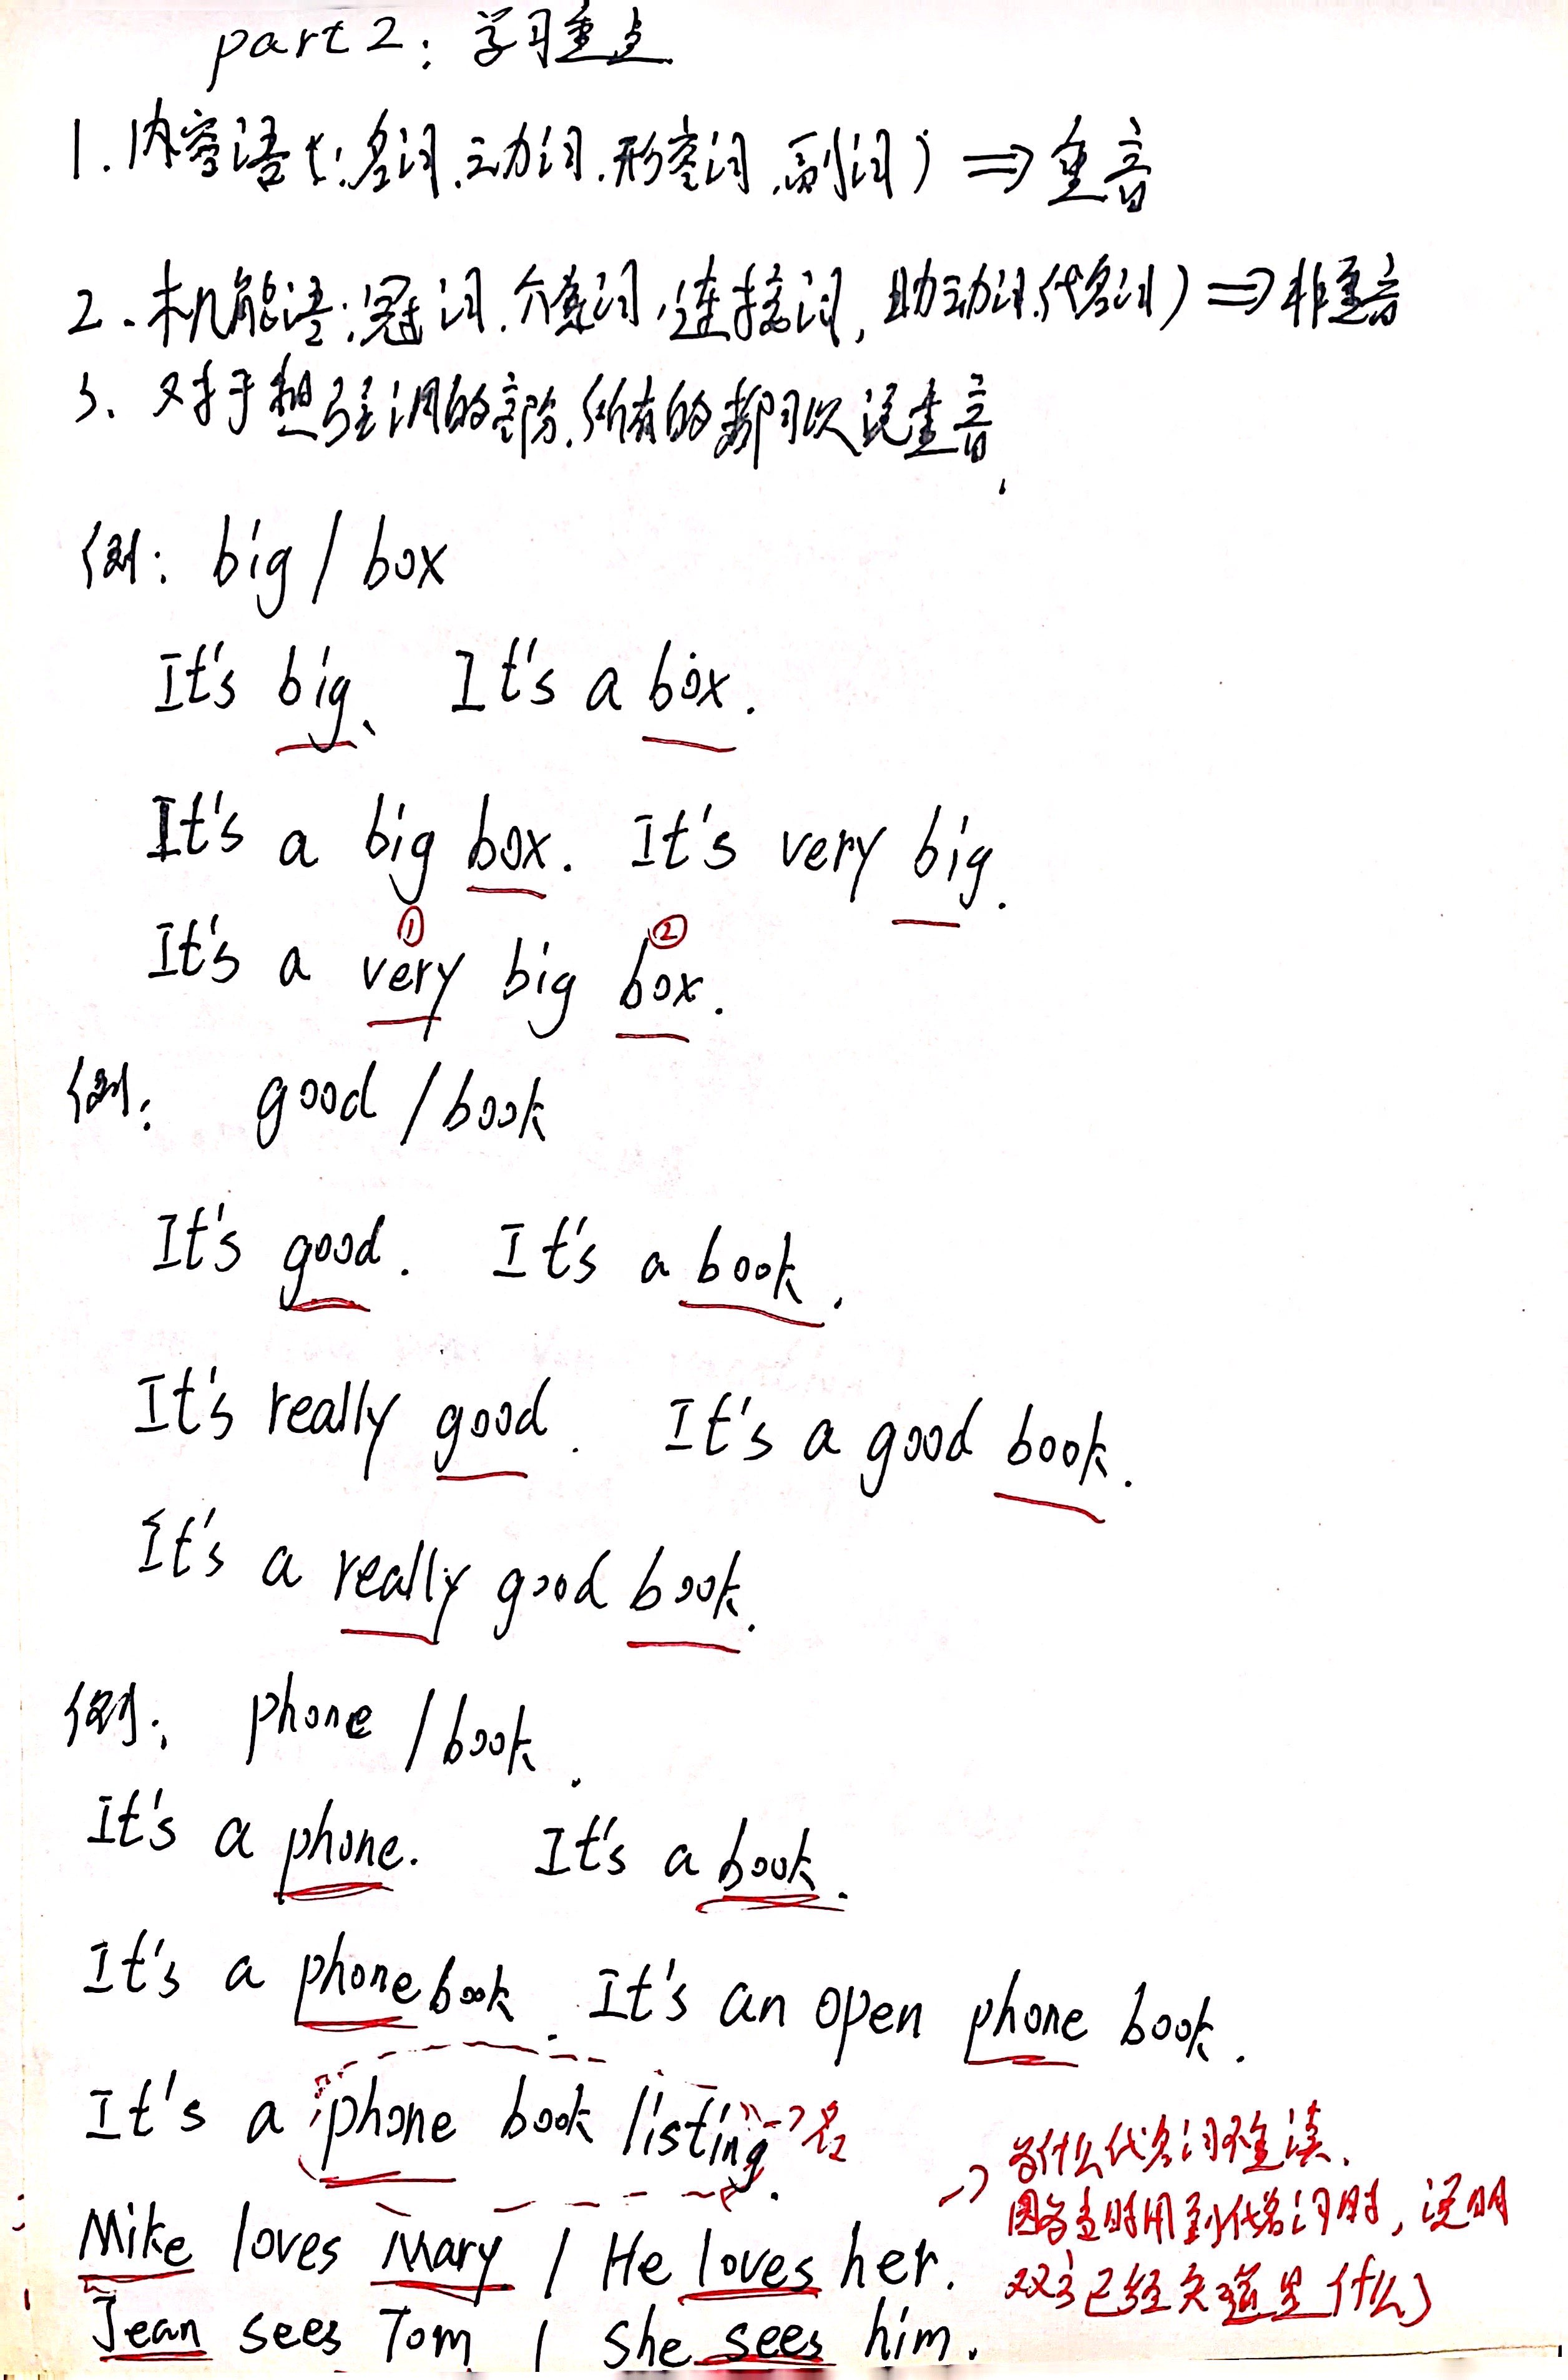 part 2: 学习重点
1. 内容语(: 名词、动词、形容词、副词) ⇒ 重音
2. 机能语: 冠词、介系词, 连接词, 助动词、代名词) ⇒ 非重音
3、对于想强调的部份, 所有的都可以说重音,
例: big / box
It's big、 It's a box.
It's a big box. It's very big.
① ②
It's a very big box.
例: good / book
It's good. It's a book.
It's really good. It's a good book.
It's a really good book.
例: phone / book.
It's a phone. It's a book.
It's a phone book. It's an open phone book.
It's a phone book listing. 名
为什么代名词不重读、
因为当时用到代名词时, 说明
双方已经知道是什么)
Mike loves Mary / He loves her.
Jean sees Tom / She sees him.